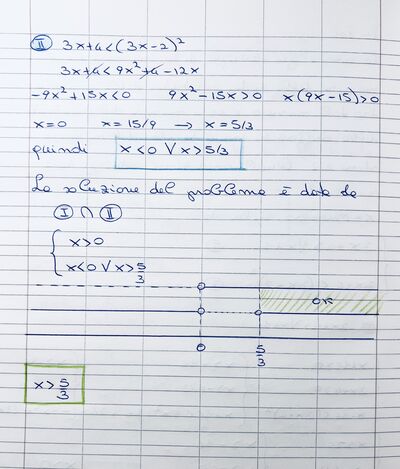 II 3x+4<(3x-2)²
3x+4<9x²+4-12x
-9x²+15x<0 9x²-15x>0 x(9x-15)>0
x=0 x=15/9 → x=5/3
quindi x<0 V x>5/3
La soluzione del problema è data da
I ∩ II
x>0
x<0 V x>5/3
OK
0 5/3
x>5/3